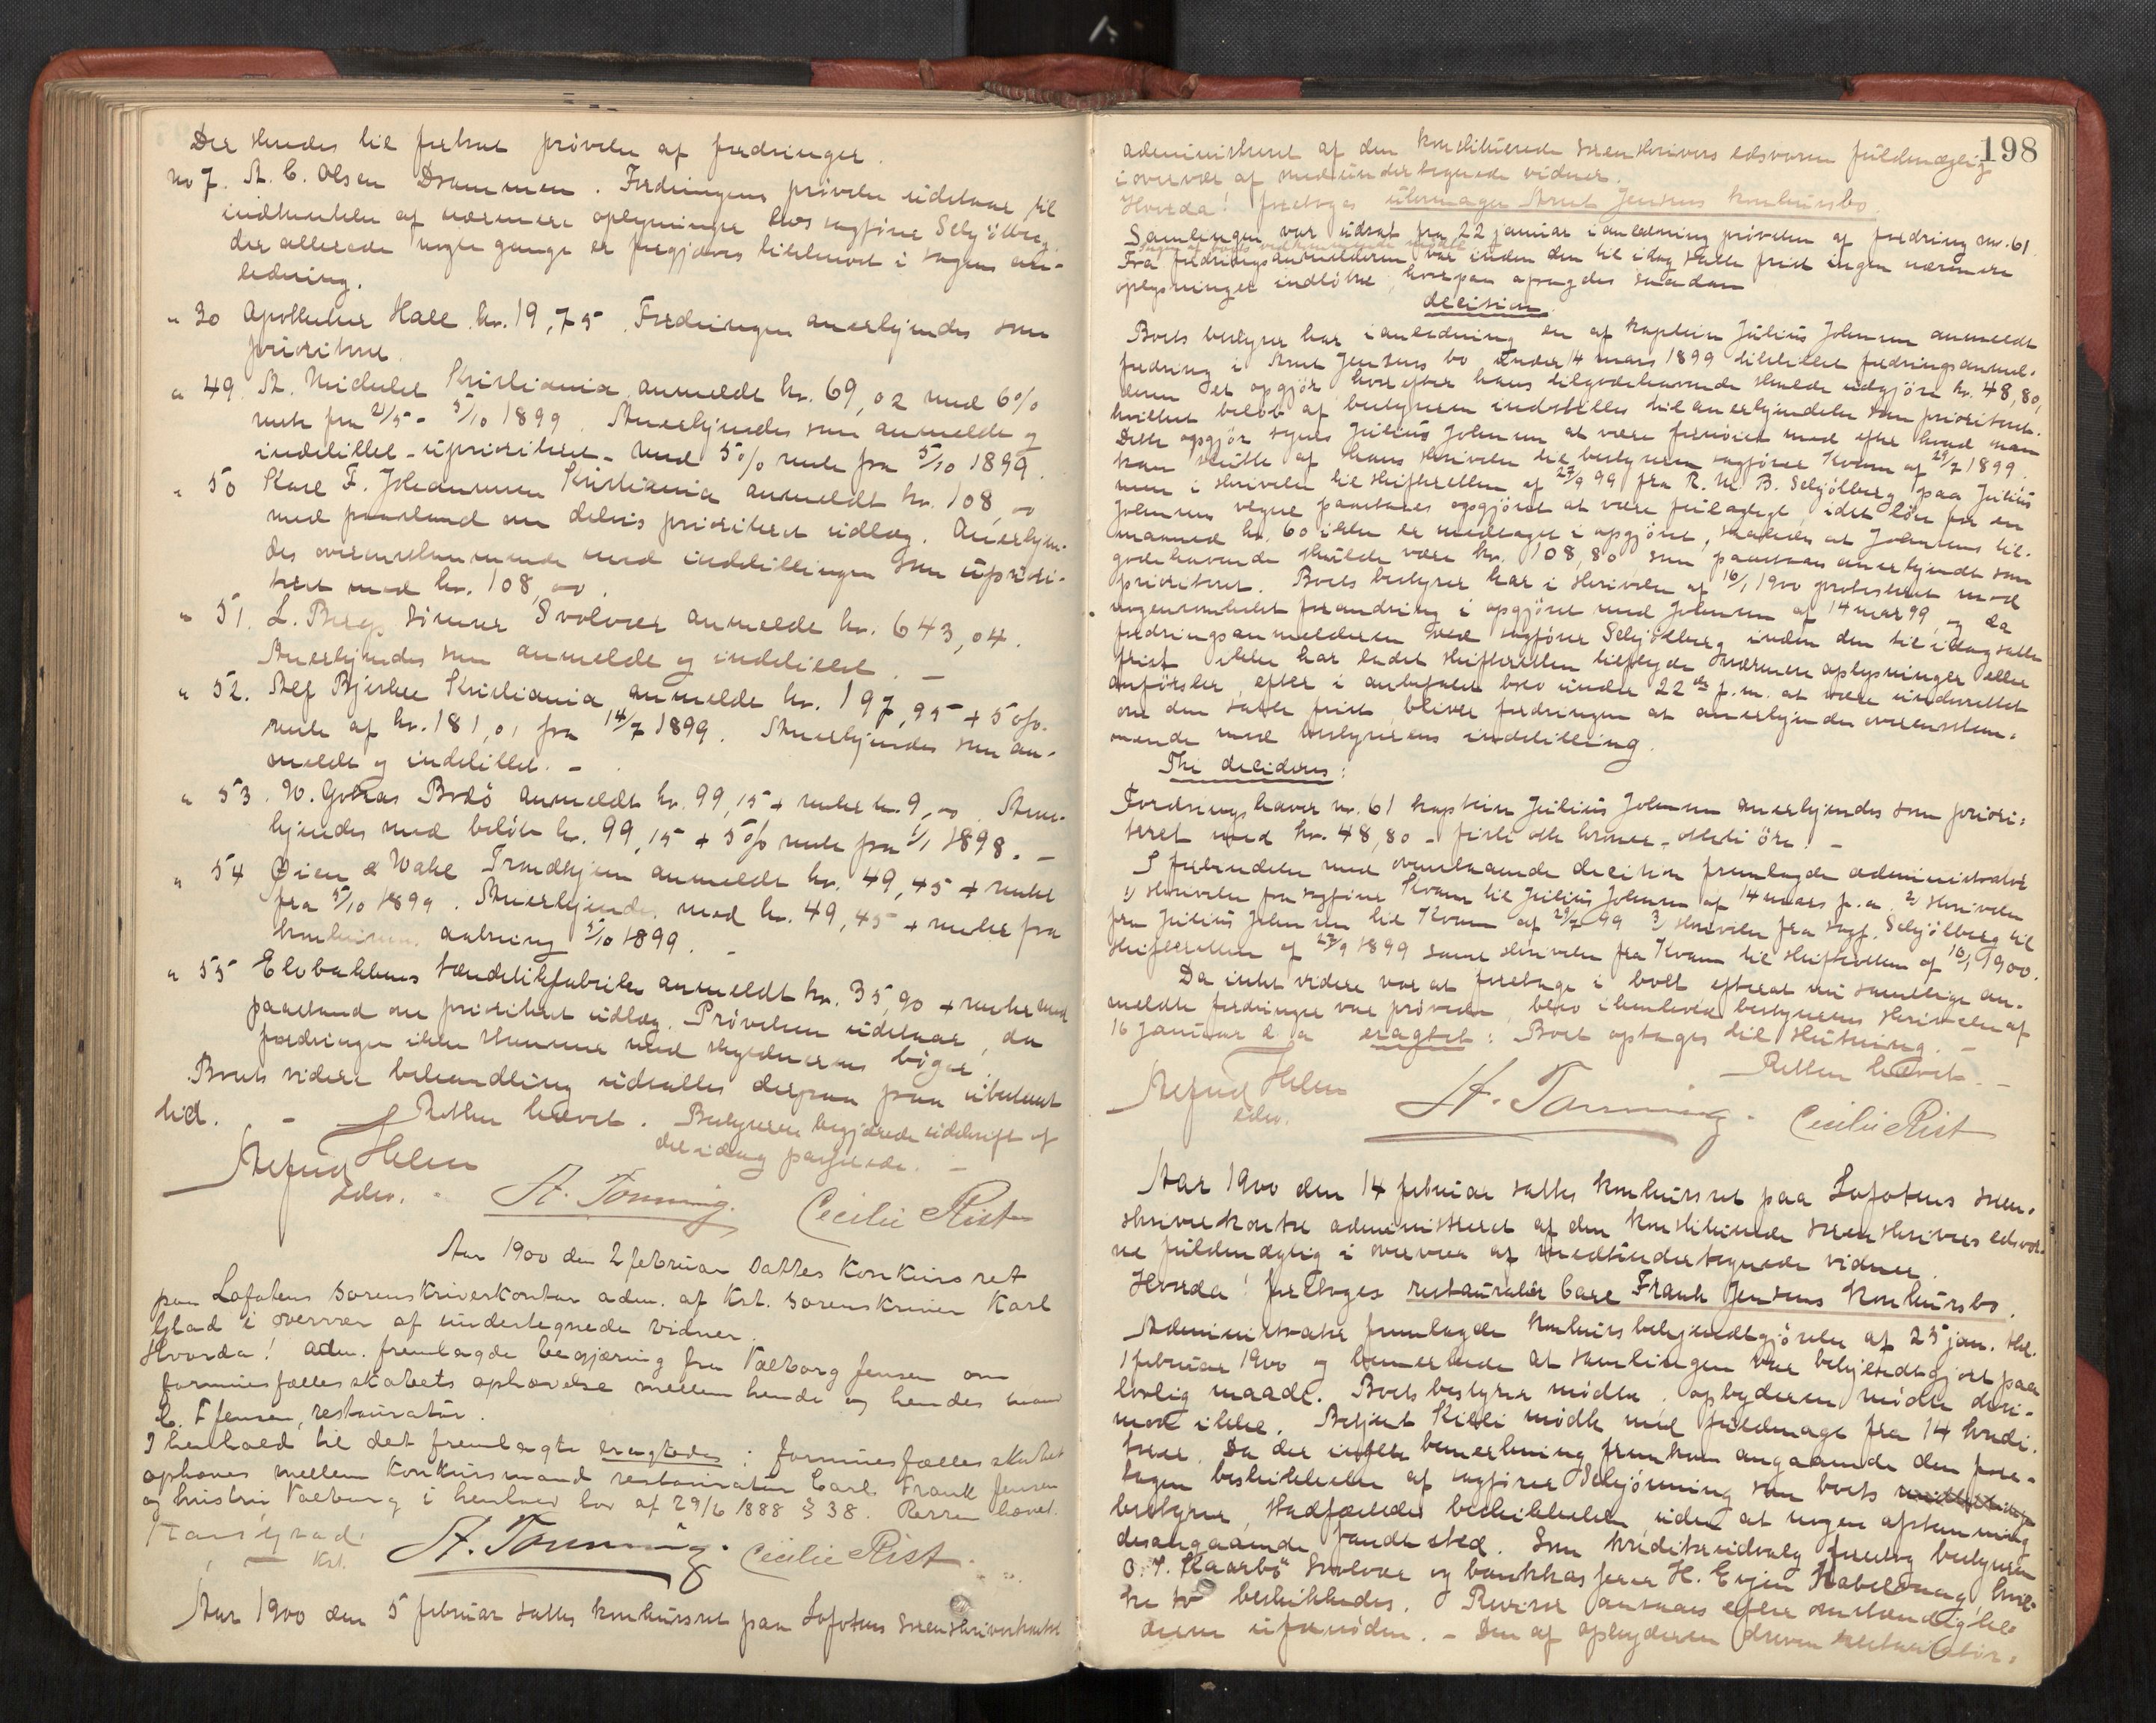 Der skredes til fortsat prøvelse af fordringer.
No 7. A. C. Olsen Drammen. Fordringens prøvelse udstaar til
indhentelse af nærmere oplysninger hos sagfører Schjølberg,
der allerede nogle gange er forgjæves tilskrevet i sagens an-
ledning.
" 30 Apotheker Hall kr. 19,75. Fordringen anerkjendes som
prioriteret.
" 49. A. Michelet Kristiania anmeldt kr. 69,02 med 6%
rente fra 2/5 - 5/10 1899. Anerkjendes som anmeldt og
indstillet - uprioriteret - med 5% rente fra 5/10 1899.
" 50 Karl F. Johannesen Kristiania anmeldt kr. 108,00
med paastand om delvis prioriteret udlæg. Anerkjen-
des overensstemmende med indstillingen som upriori-
teret med kr. 108,00.
" 51. L. Bergs sønner Svolvær anmeldt kr. 643,04.
Anerkjendes som anmeldt og indstillet. -
" 52. Alf Bjercke Kristiania anmeldt kr. 197,95 + 5%
rente af kr. 181,01 fra 14/7 1899. Anerkjendes som an-
meldt og indstillet. -
" 53. W. Bodø anmeldt kr. 99,15 + renter kr. 9,00. Aner-
kjendes med beløb kr. 99,15 + 5% rente fra 1/1 1898. -
" 54 Øien & Wahl Trondhjem anmeldt kr. 49,45 + renter
fra 5/10 1899. Anerkjendes med kr. 49,45 + renter fra
konkursens aabning 5/10 1899. -
" 55 Elvebakkens tændstikfabrik anmeldt kr. 35,90 + renter med
paastand om prioriteret udlæg. Prøvelsen udstaar, da
fordringen ikke stemmer med skyldnerens bøger.
Boets videre behandling udsattes derpaa paa ubestemt
tid. - Retten hævet. Bestyreren begjærede udskrift af
det idag passerede. -
Alfred Helen
edsv.
A. Tonning.
Cecilie Rist
Aar 1900 den 2 februar sattes konkursret
paa Lofotens sorenskriverkontor adm. af Kst. sorenskriver Karl
Glad i overvær af undertegnede vidner.
Hvorda! Adm. fremlagde begjæring fra Valborg Jensen om
formuesfællesskabets ophævelse mellem hende og hendes mand
C. F Jensen, restauratør.
I henhold til det fremlagte eragtedes: formuesfællesskabet
ophæves mellem konkursmand restauratør Carl Frank Jensen
og hustru Valborg i henhold lov af 29/6 1888 § 38. Retten hævet.
Karl Glad
Kst.
A. Tonning.
Cecilie Rist.
Aar 1900 den 5 februar sattes konkursret paa Lofotens sorenskriverkontor
198
administreret af den konstituerede sorenskrivers edsvorne fuldmægtig
i overvær af medundertegnede vidner.
Hvorda! foretoges uhrmager Arnt Jensens konkursbo.
Samlingen var udsat fra 22 januar i anledning prøvelsen af fordring no. 61.
Fra fordringsanmelderen var inden den til idag satte frist ingen nærmere
oplysninger indløbne, hvorpaa afsagdes saadan
decision:
Boets bestyrer har i anledning en af kaptein Julius Johnsen anmeldt
fordring i Arnt Jensens bo under 14 mars 1899 tilstillet fordringsanmel-
deren et opgjør hvorefter hans tilgodehavende skulde udgjøre kr. 48,80,
hvilket beløb af bestyreren indstilles til anerkjendelse som prioriteret.
Dette opgjør synes Julius Johnsen at være fornøiet med efter hvad man
kan slutte af hans skrivelse til bestyreren sagfører Kvam af 29/7 1899.
men i skrivelse til skifteretten af 27/9 99 fra R. M. B. Schjølberg paa Julius
Johnsens vegne paastaaes opgjøret at være feilagtigt, idet løn for en
maaned kr. 60 ikke er medtaget i opgjøret, saaledes at Johnsens til-
godehavende skulde være kr. 108,80 som paastaaes anerkjendt som
prioriteret. Boets bestyrer har i skrivelse af 16/1 1900 protesteret mod
nogensomhelst forandring i opgjøret med Johnsen af 14 mar 99, og da
fordringsanmelderen ved sagfører Schjølberg inden den til idag satte
frist ikke har ladet skifteretten tilflyde nærmere oplysninger eller
anførsler, efter i anbefalet brev under 22de f. m. at være underrettet
om den satte frist, bliver fordringen at anerkjende overensstem-
mende med bestyrerens indstilling.
Thi decideres:
Fordringshaver no. 61 kaptein Julius Johnsen anerkjendes som priori-
teret med kr. 48,80 - firti otte kroner - otteti øre! -
I forbindelse med ovenstaaende decision fremlagde administrator
1) skrivelse fra sagfører Kvam til Julius Johnsen af 14 mars f. a. 2) skrivelse
fra Julius Johnsen til Kvam af 29/7 99 3) skrivelse fra sagf. Schjølberg til
skifteretten af 27/9 1899 samt skrivelse fra Kvam til skifteretten af 16/1 1900.
Da intet videre var at foretage i boet efterat nu samtlige an-
meldte fordringer var prøvede, blev i henhold bestyrerens skrivelse af
16 januar d. a eragtet: Boet optages til slutning. -
Retten hævet. -
Alfred Helen
edsv.
A. Tonning.
Cecilie Rist
Aar 1900 den 14 februar sattes konkursret paa Lofotens soren-
skriverkontor administreret af den konstituerede sorenskrivers edsvor-
ne fuldmægtig i overvær af medundertegnede vidner.
Hvorda! foretoges restauratør Carl Frank Jensens konkursbo.
Administrator fremlagde konkursbekjendtgjørelse af 25 jan. thl.
1 februar 1900 og bemerkede at samlingen var bekjendtgjort paa
lovlig maade. Boets bestyrer mødte, opbyderen mødte deri-
mod ikke. Betjent Killi mødte med fuldmagt fra 14 kredi-
torer. Da der ingen bemerkning fremkom angaaende den fore-
tagne beskikkelse af sagfører Schjønning som boets
bestyrer, stadfæstedes beskikkelsen uden at nogen afstemning
desangaaende fandt sted. Som kreditorudvalg foreslog bestyreren
O. J. Kaarbø Svolvær og bankkasserer H. Egjen Kabelvaag, hvil-
ke to beskikkedes. Revisor ansaaes efter omstændighe-
derne ufornøden. - Den af opbyderen drevne restauratør-